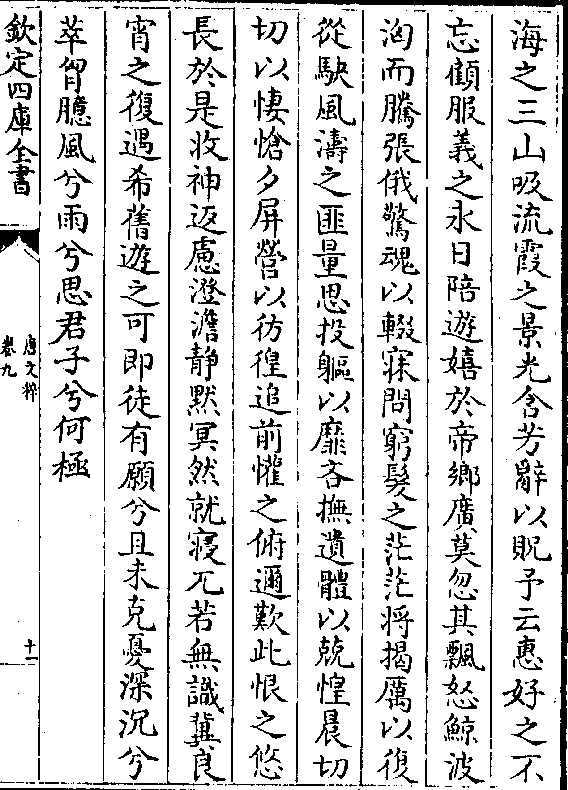 海之三山吸流霞之景光含芳辭以貺予云惠好之不
忘顧服義之永日陪遊嬉於帝鄉廣莫忽其飄怒鯨波
洶而騰張俄驚魂以輟寐問窮髮之茫茫將揭厲以復
從駃風濤之匪量思投軀以靡吝撫遺體以兢惶晨切
切以悽愴夕屏營以彷徨追前懽之俯邇歎此恨之悠
長於是收神返慮澄澹静默冥然就寢兀若無識冀良
宵之復遇希舊遊之可即徒有願兮且未克憂深沉兮
萃胷臆風兮雨兮思君子兮何極
欽定四庫全書
唐文粹
卷九
十一